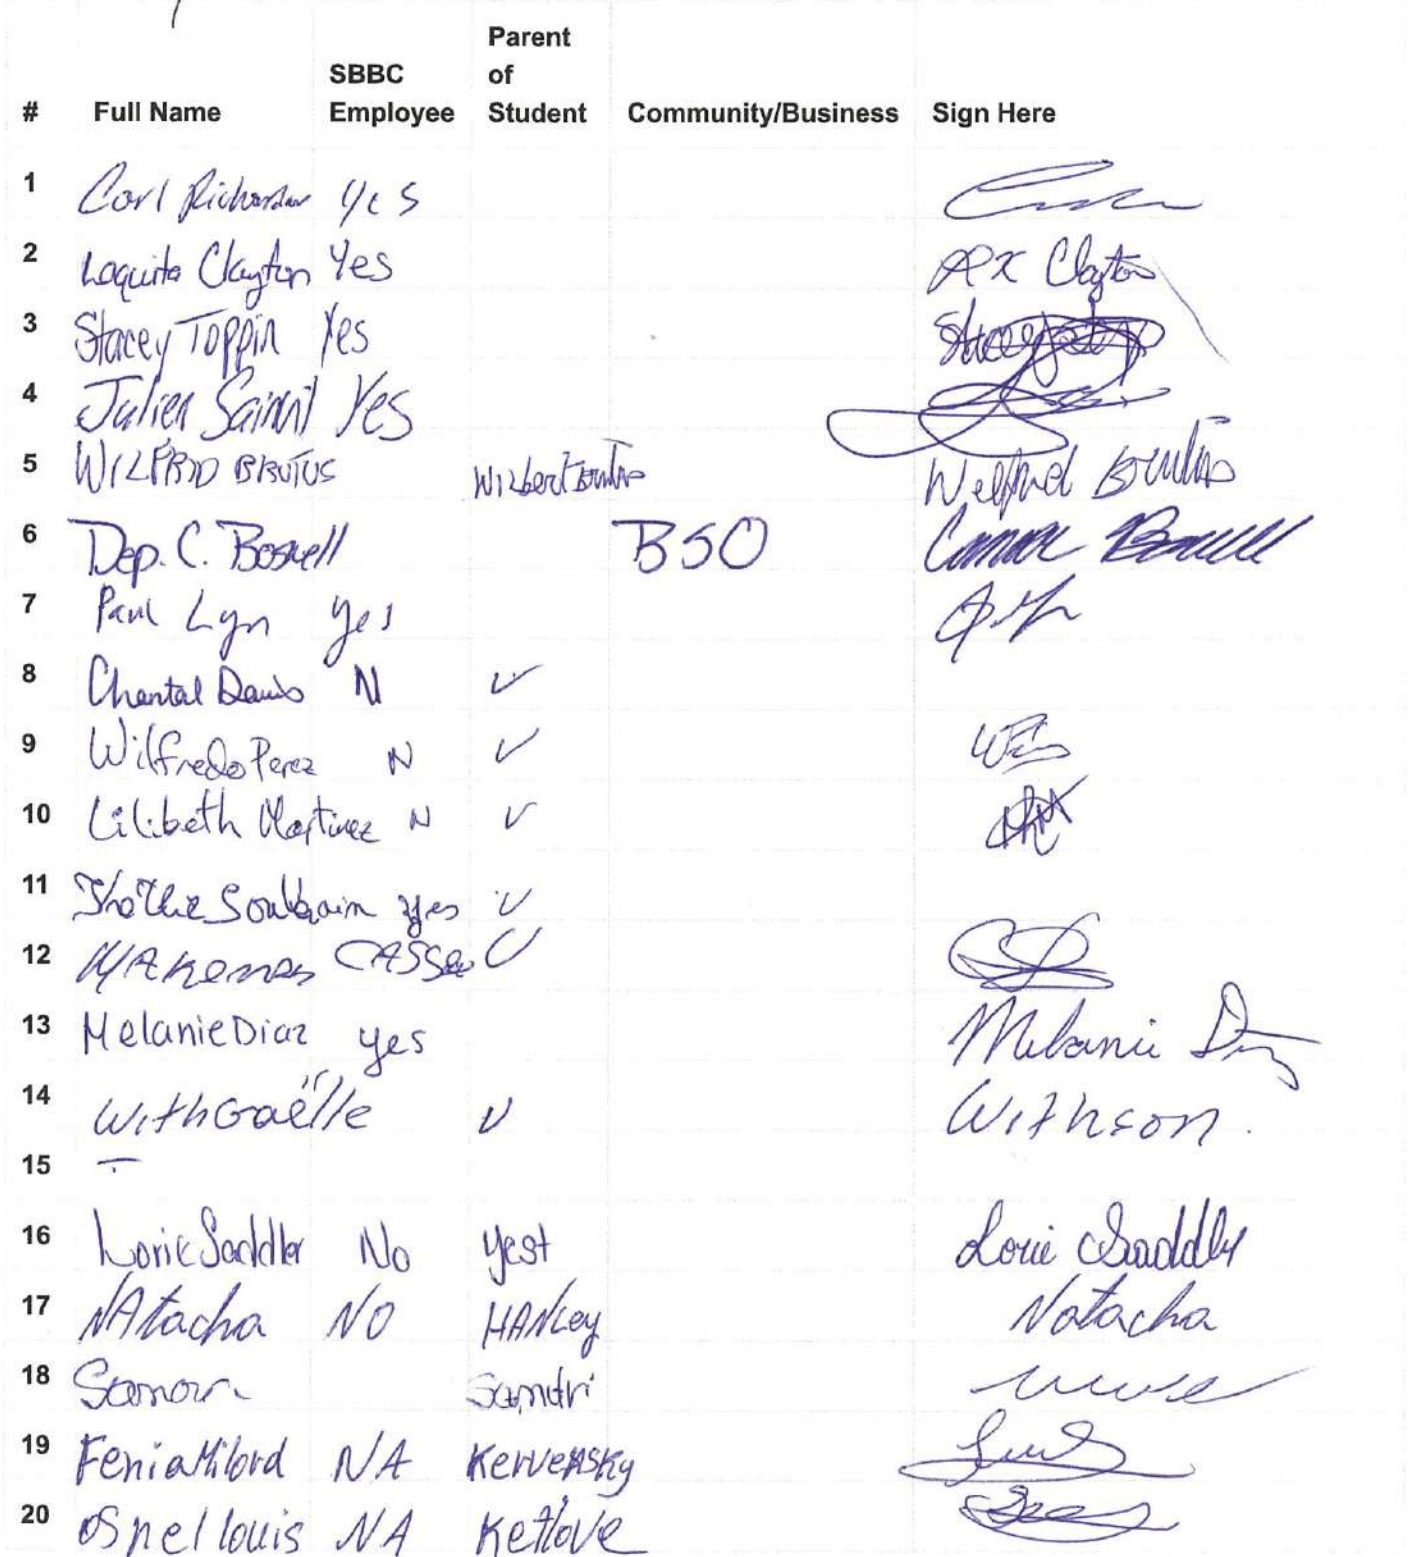 Parent
SBBC of
# Full Name Employee Student Community/Business Sign Here
1 Carl Richardson Yes
2 Laquita Clayton Yes Clayton
3 Stacey Toppin Yes
4 Julien Yes
5 WILFRID BRUTUS Wilbert Brutus Wilfrid Brutus
6 Dep. C. Boswell BSO Boswell
7 Paul Lyn yes
8 Chantal Davis N ✓
9 Wilfredo Perez N ✓
10 Lilibeth Martinez N ✓
11 yes ✓
12 ✓
13 Melanie Diaz yes Melanie Diaz
14 WithGaëlle ✓ Withson.
15 -
16 Lorie Saddler No yest Lorie Saddler
17 NAtacha NO HANLey Natacha
18 Sandri
19 Fenia Milord NA Kervensky
20 OSnel louis NA Ketlove